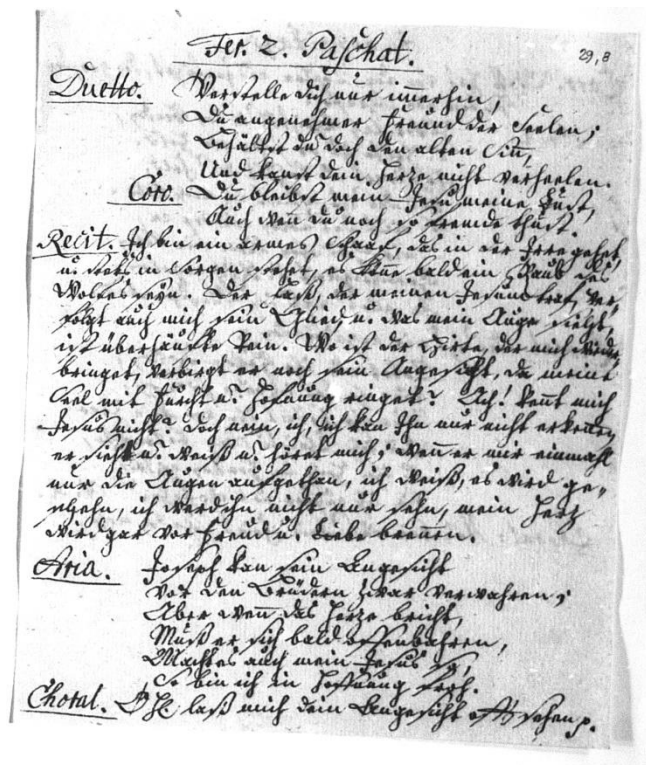 Fer. 2. Paschat.
29,8
Duetto. Verstelle dich nur immerhin,
Du angenehmer Freund der Seelen;
Behältst du doch den alten Sinn,
Und kanst dein Herze nicht verheelen.
Coro. Du bleibst mein Jesu meine Lust,
Auch wenn du noch so fremde thust.
Recit. Ich bin ein armes Schaaf, das in der Irre gehet,
u. stets in Sorgen stehet, es könne bald ein Raub des
Wolfes seyn. Der Haß, der meinen Jesum traf, ver,
folgt auch mich sein Glied, u. was mein Auge sieht,
ist überhäufte Pein. Wo ist der Hirte, der mich wieder,
bringet, verbirgt er noch sein Angesicht, da meine
Seel mit Furcht u. Hofnung ringet? Ach! kennt mich
Jesus nicht? doch nein, ich, ich kan Ihn nur nicht erkennen,
er sieht u. weiß u. höret mich; wenn er mir einmahl
nur die Augen aufgethan, ich weiß, es wird ge,
schehn, ich werd ihn nicht nur sehn, mein Herz
wird gar vor Freud u. Liebe brennen.
Aria. Joseph kan sein Angesicht
Vor den Brüdern zwar verwahren;
Aber wenn das Herze bricht,
Muß er sich bald offenbahren,
Macht es auch mein Jesus so,
So bin ich in Hoffnung froh.
Choral. laß mich dein Angesicht offt sehen p.